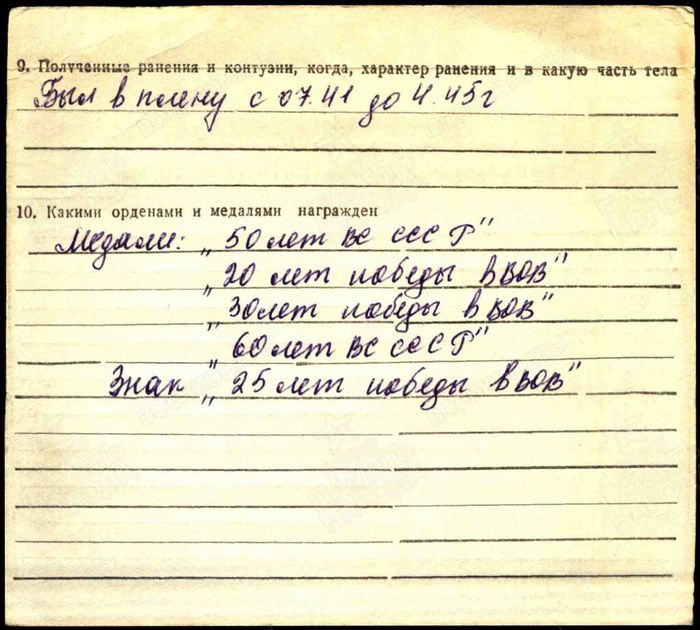 9. Полученные ранения и контузии, когда, характер ранения и в какую часть тела
Был в плену с 07.41 до 4.45г
10. Какими орденами и медалями награжден
Медали: „50 лет ВС СССР"
„20 лет победы в ВОВ"
„30 лет победы в ВОВ"
„60 лет ВС СССР"
Знак „25 лет победы в ВОВ"